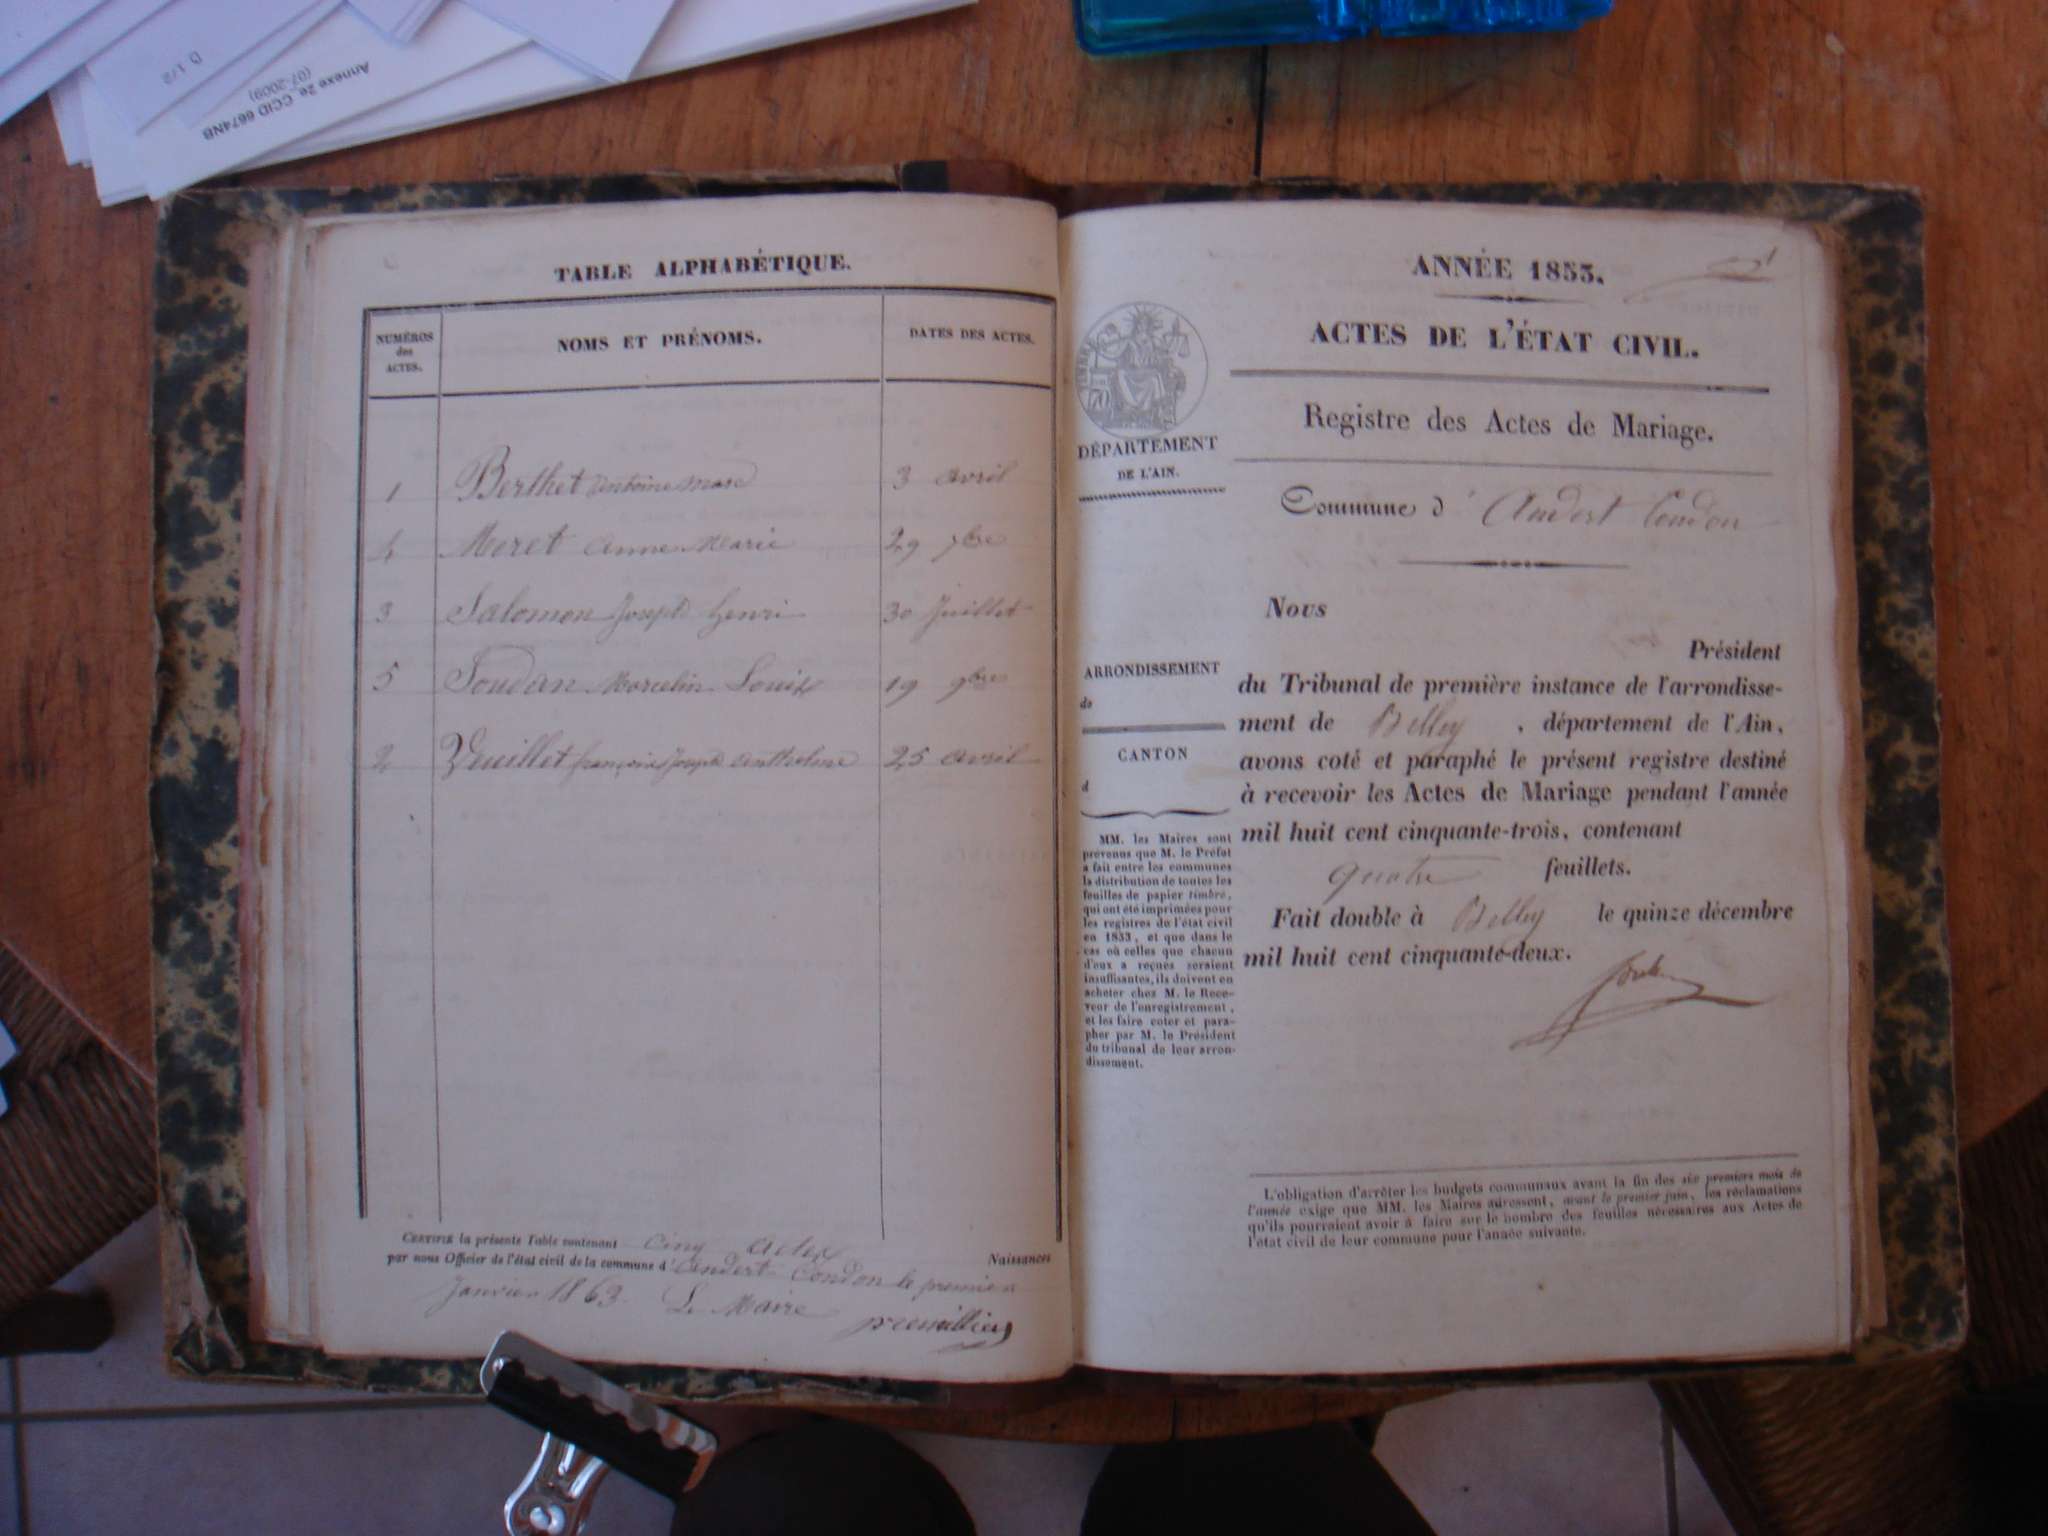 D 1/2
Annexe 2e CCID 6674NB
(07-2009)
TABLE ALPHABÉTIQUE.
NUMÉROS
des
ACTES.
NOMS ET PRÉNOMS.
DATES DES ACTES.
1 Berthet Antoine Marc 3 avril
4 Meret Anne Marie 29 7bre
3 Salomon Joseph henri 30 Juillet
5 Soudan Marcelin Louis 19 9bre
2 Veuillet françois Joseph Anthelme 25 avril
CERTIFIÉ la présente Table contenant cinq actes Naissances
par nous Officier de l'état civil de la commune d'Andert Condon le premier
Janvier 1863. Le Maire
ANNÉE 1853.
1
ACTES DE L'ÉTAT CIVIL.
Registre des Actes de Mariage.
TIMBRE
70
DÉPARTEMENT
DE L'AIN.
Commune d' Andert Condon
Nous
Président
ARRONDISSEMENT
de
CANTON
d
du Tribunal de première instance de l'arrondisse-
ment de Belley , département de l'Ain,
avons coté et paraphé le présent registre destiné
à recevoir les Actes de Mariage pendant l'année
mil huit cent cinquante-trois, contenant
quatre feuillets.
Fait double à Belley le quinze décembre
mil huit cent cinquante-deux.
MM. les Maires sont
prévenus que M. le Préfet
a fait entre les communes
la distribution de toutes les
feuilles de papier timbré,
qui ont été imprimées pour
les registres de l'état civil
en 1853, et que dans le
cas où celles que chacun
d'eux a reçues seraient
insuffisantes, ils doivent en
acheter chez M. le Rece-
veur de l'enregistrement,
et les faire coter et para-
pher par M. le Président
du tribunal de leur arron-
dissement.
L'obligation d'arrêter les budgets communaux avant la fin des six premiers mois de
l'année exige que MM. les Maires adressent, avant le premier juin, les réclamations
qu'ils pourraient avoir à faire sur le nombre des feuilles nécessaires aux Actes de
l'état civil de leur commune pour l'année suivante.